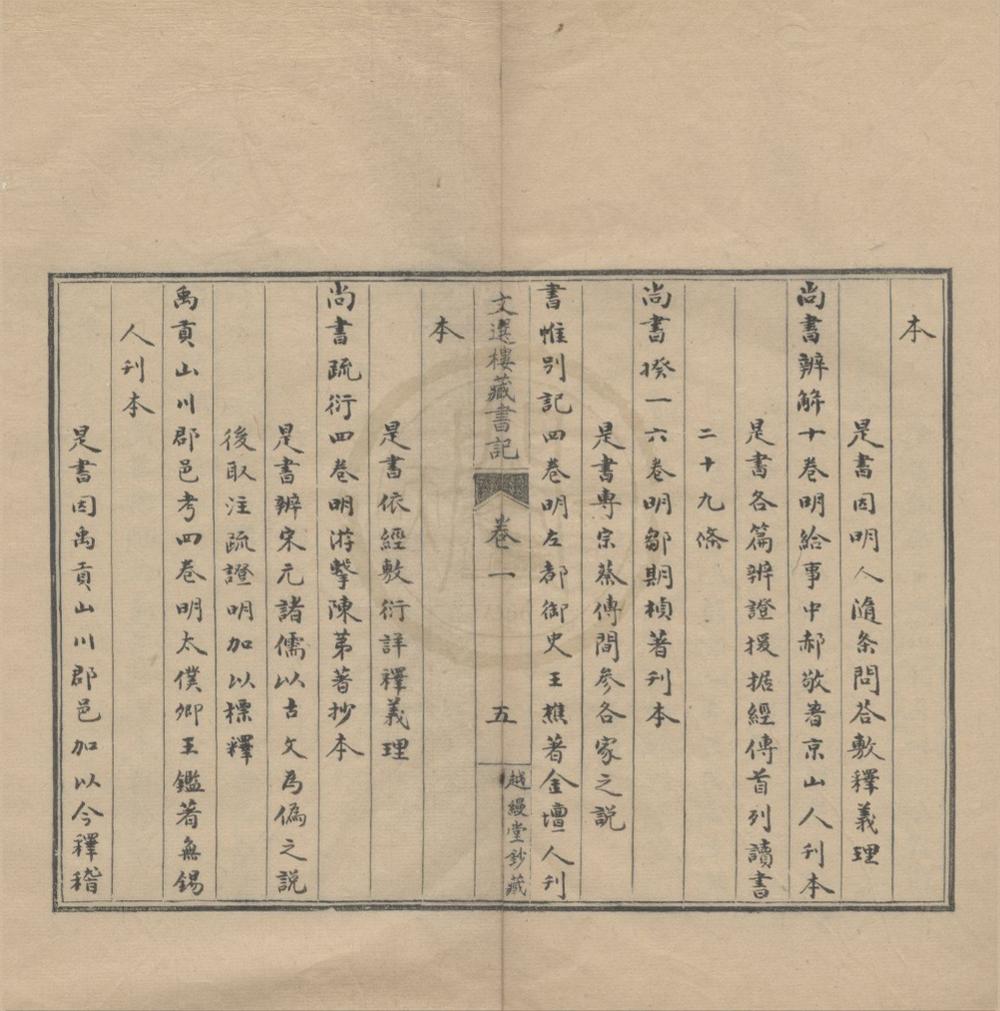 本
是書因明人隨条問答敷釋義理
尚書辨解十卷明給事中郝敬著京山人刊本
是書各篇辨證援据經傳首列讀書
二十九條
尚書揆一六卷明鄒期楨著刊本
是書專宗蔡傳間參各家之説
書帷別記四卷明左都御史王樵著金壇人刊
文選樓藏書記
卷一
五
越縵堂鈔藏
本
是書依經敷衍詳釋義理
尚書疏衍四卷明游擊陳苐著抄本
是書辨宋元諸儒以古文為偽之説
後取注疏證明加以標釋
禹貢山川郡邑考四卷明太僕卿王鑑著無錫
人刊本
是書因禹貢山川郡邑加以今釋稽